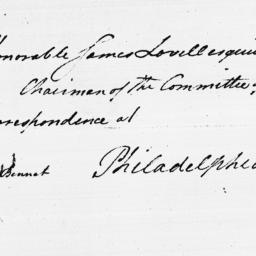 onorable James Lovell esqui
Chairman of the Committee
respondence at
Bennet Philadelphia